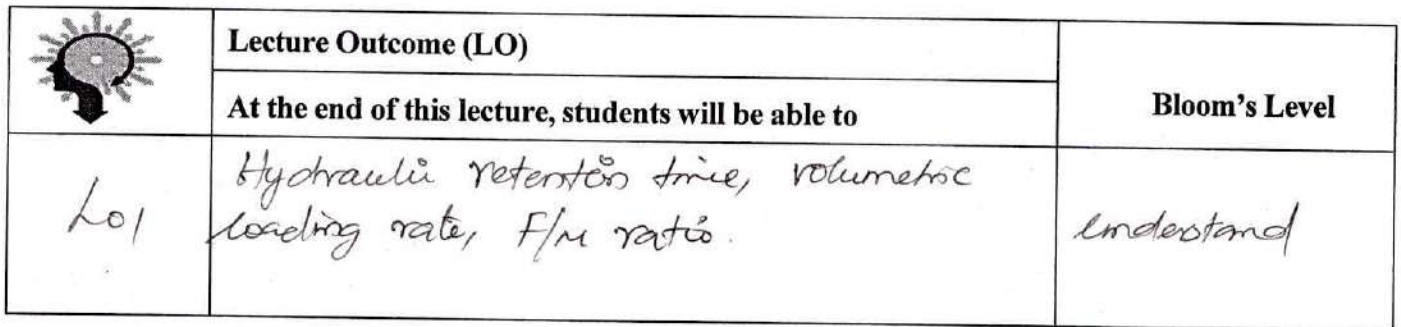 Lecture Outcome (LO)
At the end of this lecture, students will be able to
Bloom's Level
LO1
Hydraulic retention time, volumetric
loading rate, F/M ratio.
understand